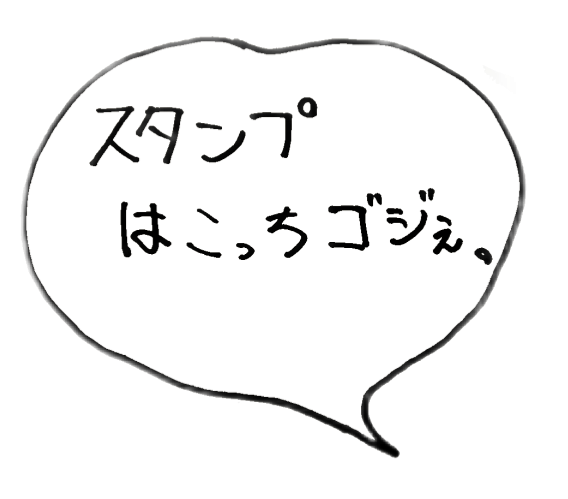 スタンプ
はこっちゴジぇ。